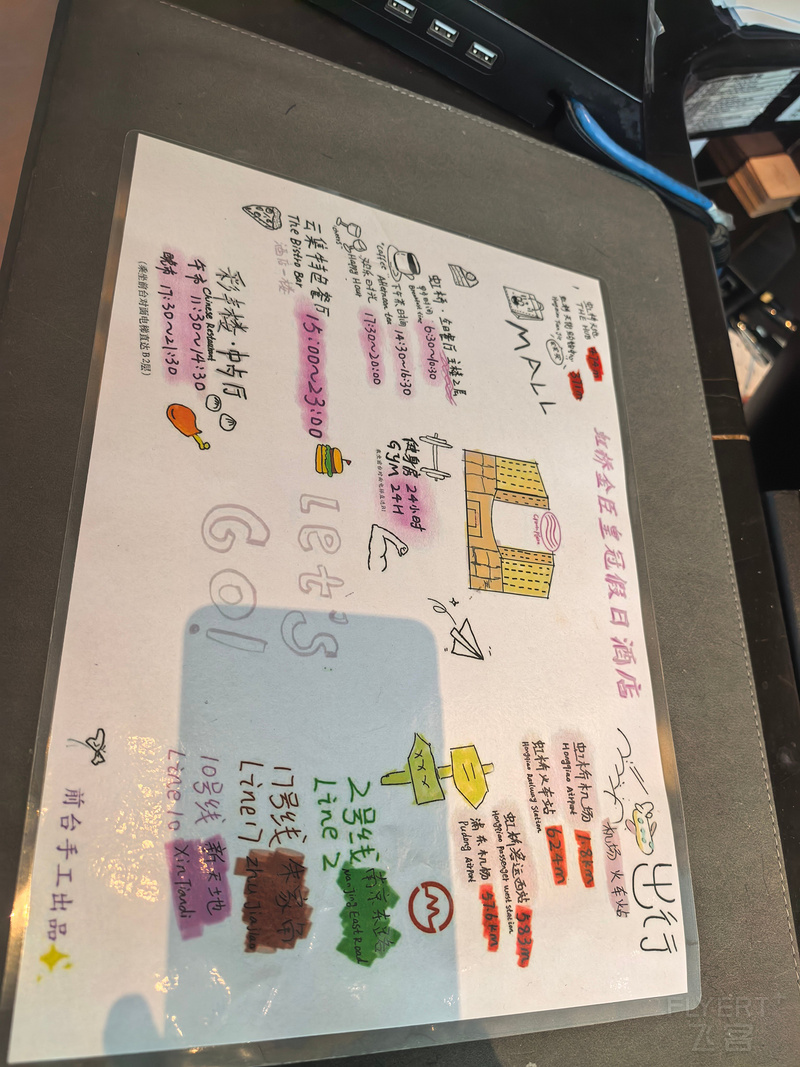 虹桥金臣皇冠假日酒店
虹桥天地
THE HUB
MALL
虹桥·自助餐厅 主楼2层
早餐时间:6:30~10:30
Breakfast time
下午茶时间 14:30~16:30
Coffee Afternoon tea
欢乐时光 17:30~20:00
Happy Hour
云集特色餐厅 15:00~23:00
The Bistro Bar
酒店一楼
彩丰楼·中占厅
Chinese Restaurant
午市 11:30~14:30
晚市 17:30~21:30
(乘坐前台对面电梯直达B2层)
健身房 24小时
GYM 24H
Crown Plaza
Let's
GO!
出行
机场 火车站
虹桥机场 1.8km
Hongqiao Airport
虹桥火车站 624m
Hongqiao Railway Station
虹桥客运西站 583m
Hongqiao Passenger west station
浦东机场 57.6km
Pudong Airport
XXX
2号线 南京东路
Line 2 NanJing East Road
17号线 朱家角
Line 17 zhuJiajiao
10号线 新天地
Line 10 XinTiandi
前台手工出品
FLYERT
飞客